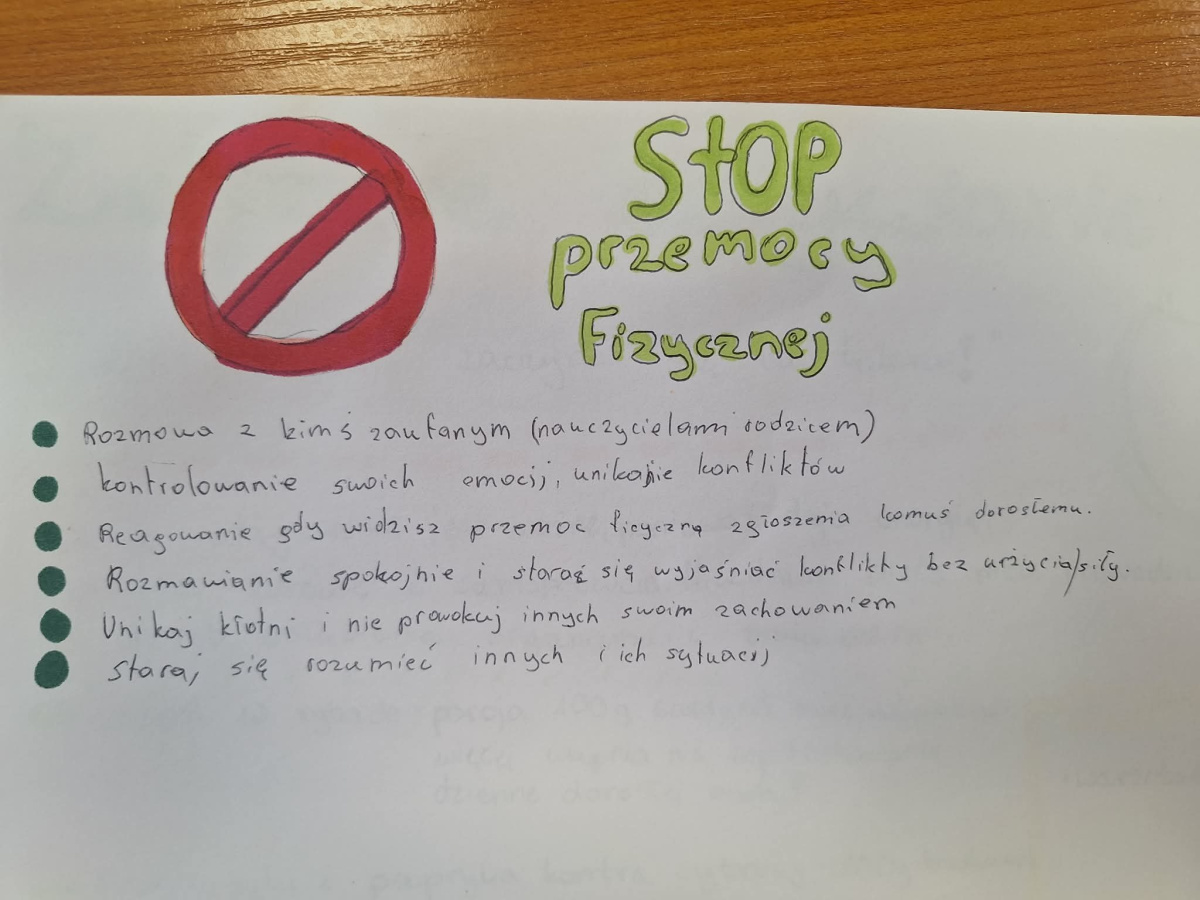 StOP
przemocy
Fizycznej
Rozmowa z kimś zaufanym (nauczycielami rodzicem)
kontrolowanie swoich emocij, unikanie konfliktów
Reagowanie gdy widzisz przemoc ficyczną zgłoszenia komuś dorosłemu.
Rozmawianie spokojnie i staraś się wyjaśniać konflikty bez urżycia/siły.
Unikaj kłotni i nie prowokuj innych swoim zachowaniem
staraj się rozumieć innych i ich sytuacij